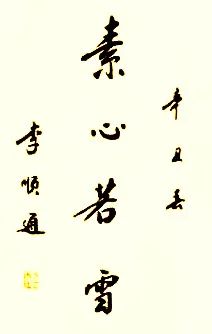 辛丑春
素心若雪
李順通